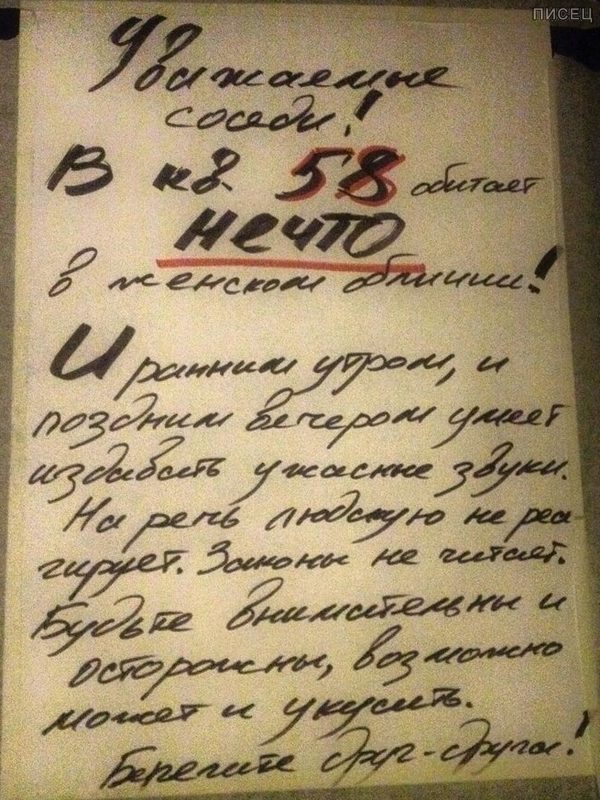 ПИСЕЦ
Уважаемые
соседи!
В кв. 58 обитает
нечто
в женском обличии!
И ранним утром, и
поздним вечером умеет
издавать ужасные звуки.
На речь людскую не реа
гирует. Законы не читает.
Будьте внимательны и
осторожны, возможно
может и укусить.
Берегите друг-друга!